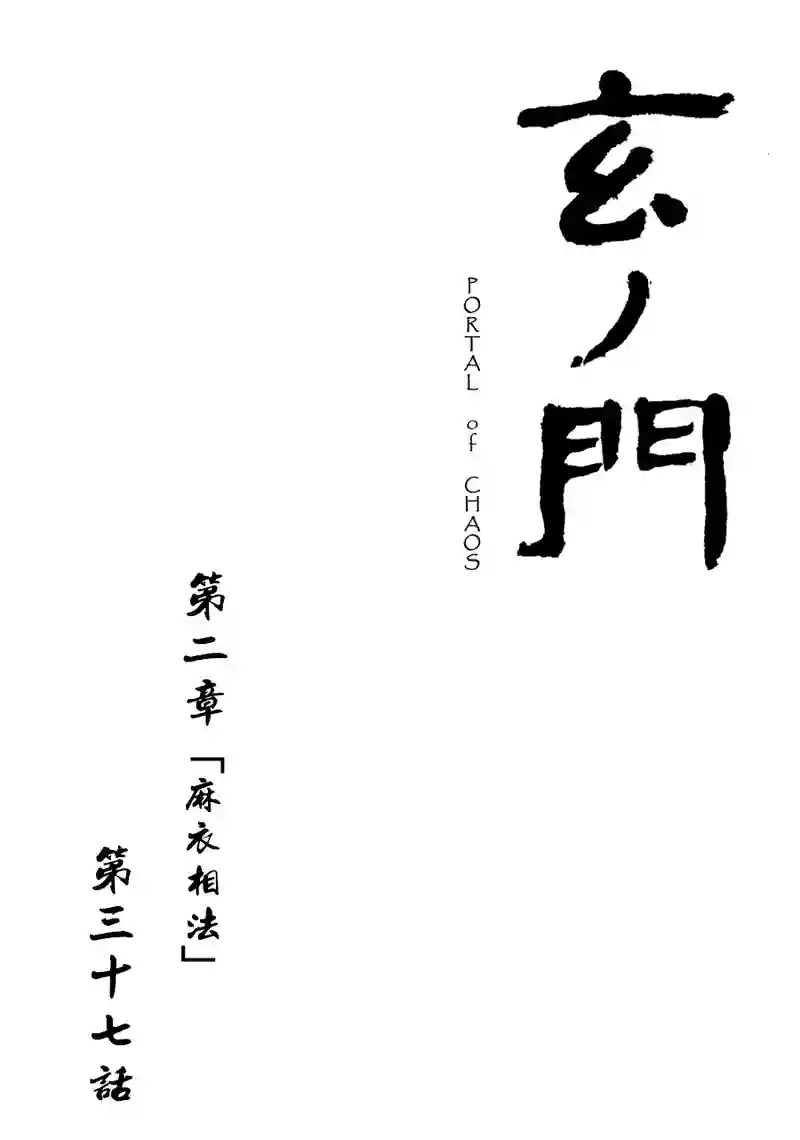 玄ノ門
PORTAL of CHAOS
第二章「麻衣相法」
第三十七話